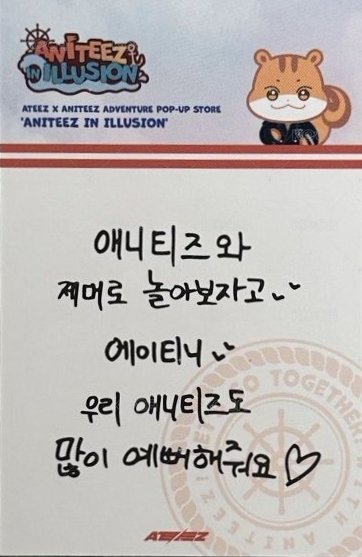 ANITEEZ
IN ILLUSION
ATEEZ X ANITEEZ ADVENTURE POP-UP STORE
'ANITEEZ IN ILLUSION'
애니티즈와
제머로 놀아보자고
에이티니
우리 애니티즈도
많이 예뻐해줘요♡
GO TOGETHER
ANITEEZ
ATEEZ